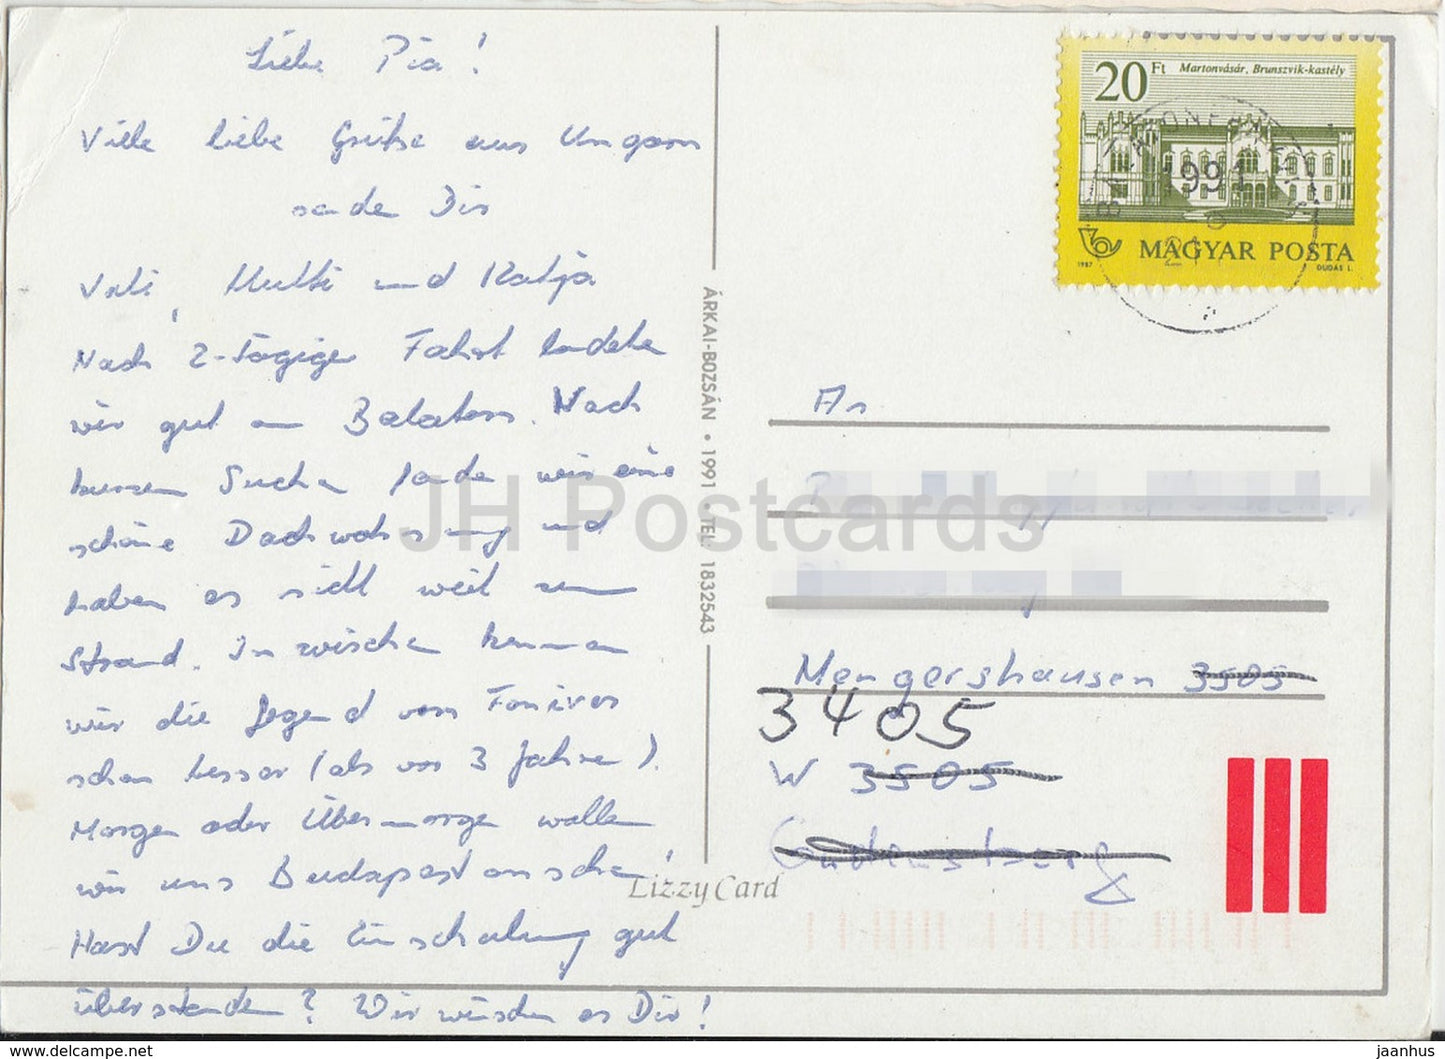 Liebe Pia!
Viele liebe Grüße aus Ungarn
sende Dir
Vati, Mutti und Katja
Nach 2-tägiger Fahrt landeten
wir gut am Balaton. Nach
kurzem Suchen fanden wir eine
schöne Dachwohnung und
haben es nicht weit zum
Strand. Inzwischen kennen
wir die Gegend von
schon besser (als vor 3 Jahren).
Morgen oder Übermorgen wollen
wir uns Budapest anschen!
Hast Du die Einschulung gut
überstanden? Wir wünschen es Dir!
ÁRKAI-BOZSÁN • 1991 • TEL: 1832543
Lizzy Card
20 Ft Martonvásár, Brunszvik-kastély
1991
21
MAGYAR POSTA
1987 DUDÁS L.
An
Mengershausen 3505
3405
W 3505
Gudensberg
JH Postcards
delcampe.net
jaanhus